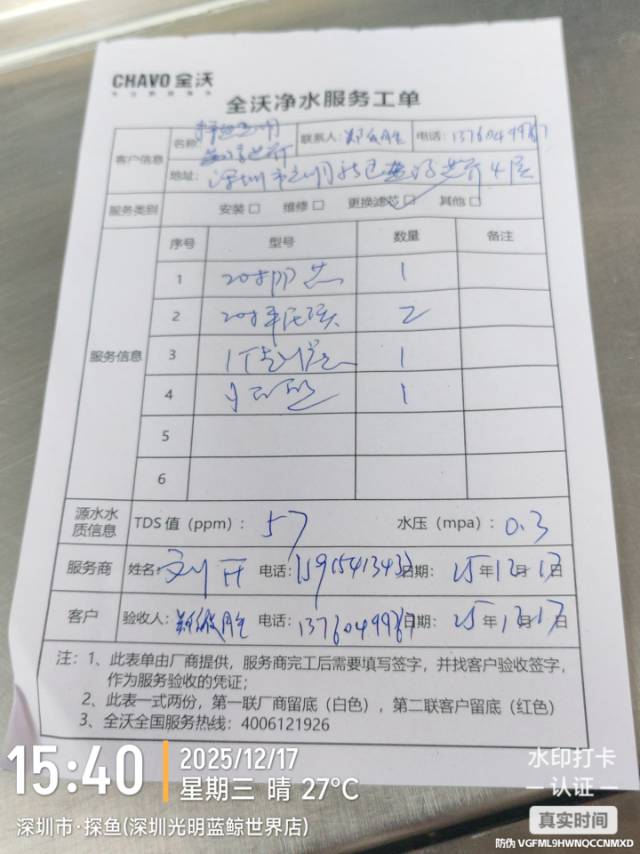 CHAVO 全沃
全沃净水服务工单
客户信息 名称: 探鱼光明 联系人: 电话:
蓝鲸世界
地址: 深圳市光明 蓝鲸世界4层
服务类别 安装□ 维修□ 更换滤芯□ 其他□
服务信息 序号 型号 数量 备注
1 1
2 2
3 1
4 1
5
6
源水水质信息 TDS值(ppm): 57 水压(mpa): 0.3
服务商 姓名: 电话: 日期: 25年12月17日
客户 验收人: 电话: 日期: 25年12月17日
注:1、此表单由厂商提供,服务商完工后需要填写签字,并找客户验收签字,
作为服务验收的凭证;
2、此表一式两份,第一联厂商留底(白色),第二联客户留底(红色)
3、全沃全国服务热线:4006121926
15:40
2025/12/17
星期三 晴 27°C
深圳市·探鱼(深圳光明蓝鲸世界店)
水印打卡
认证
真实时间
防伪 VGFML9HWNQCCNMXD